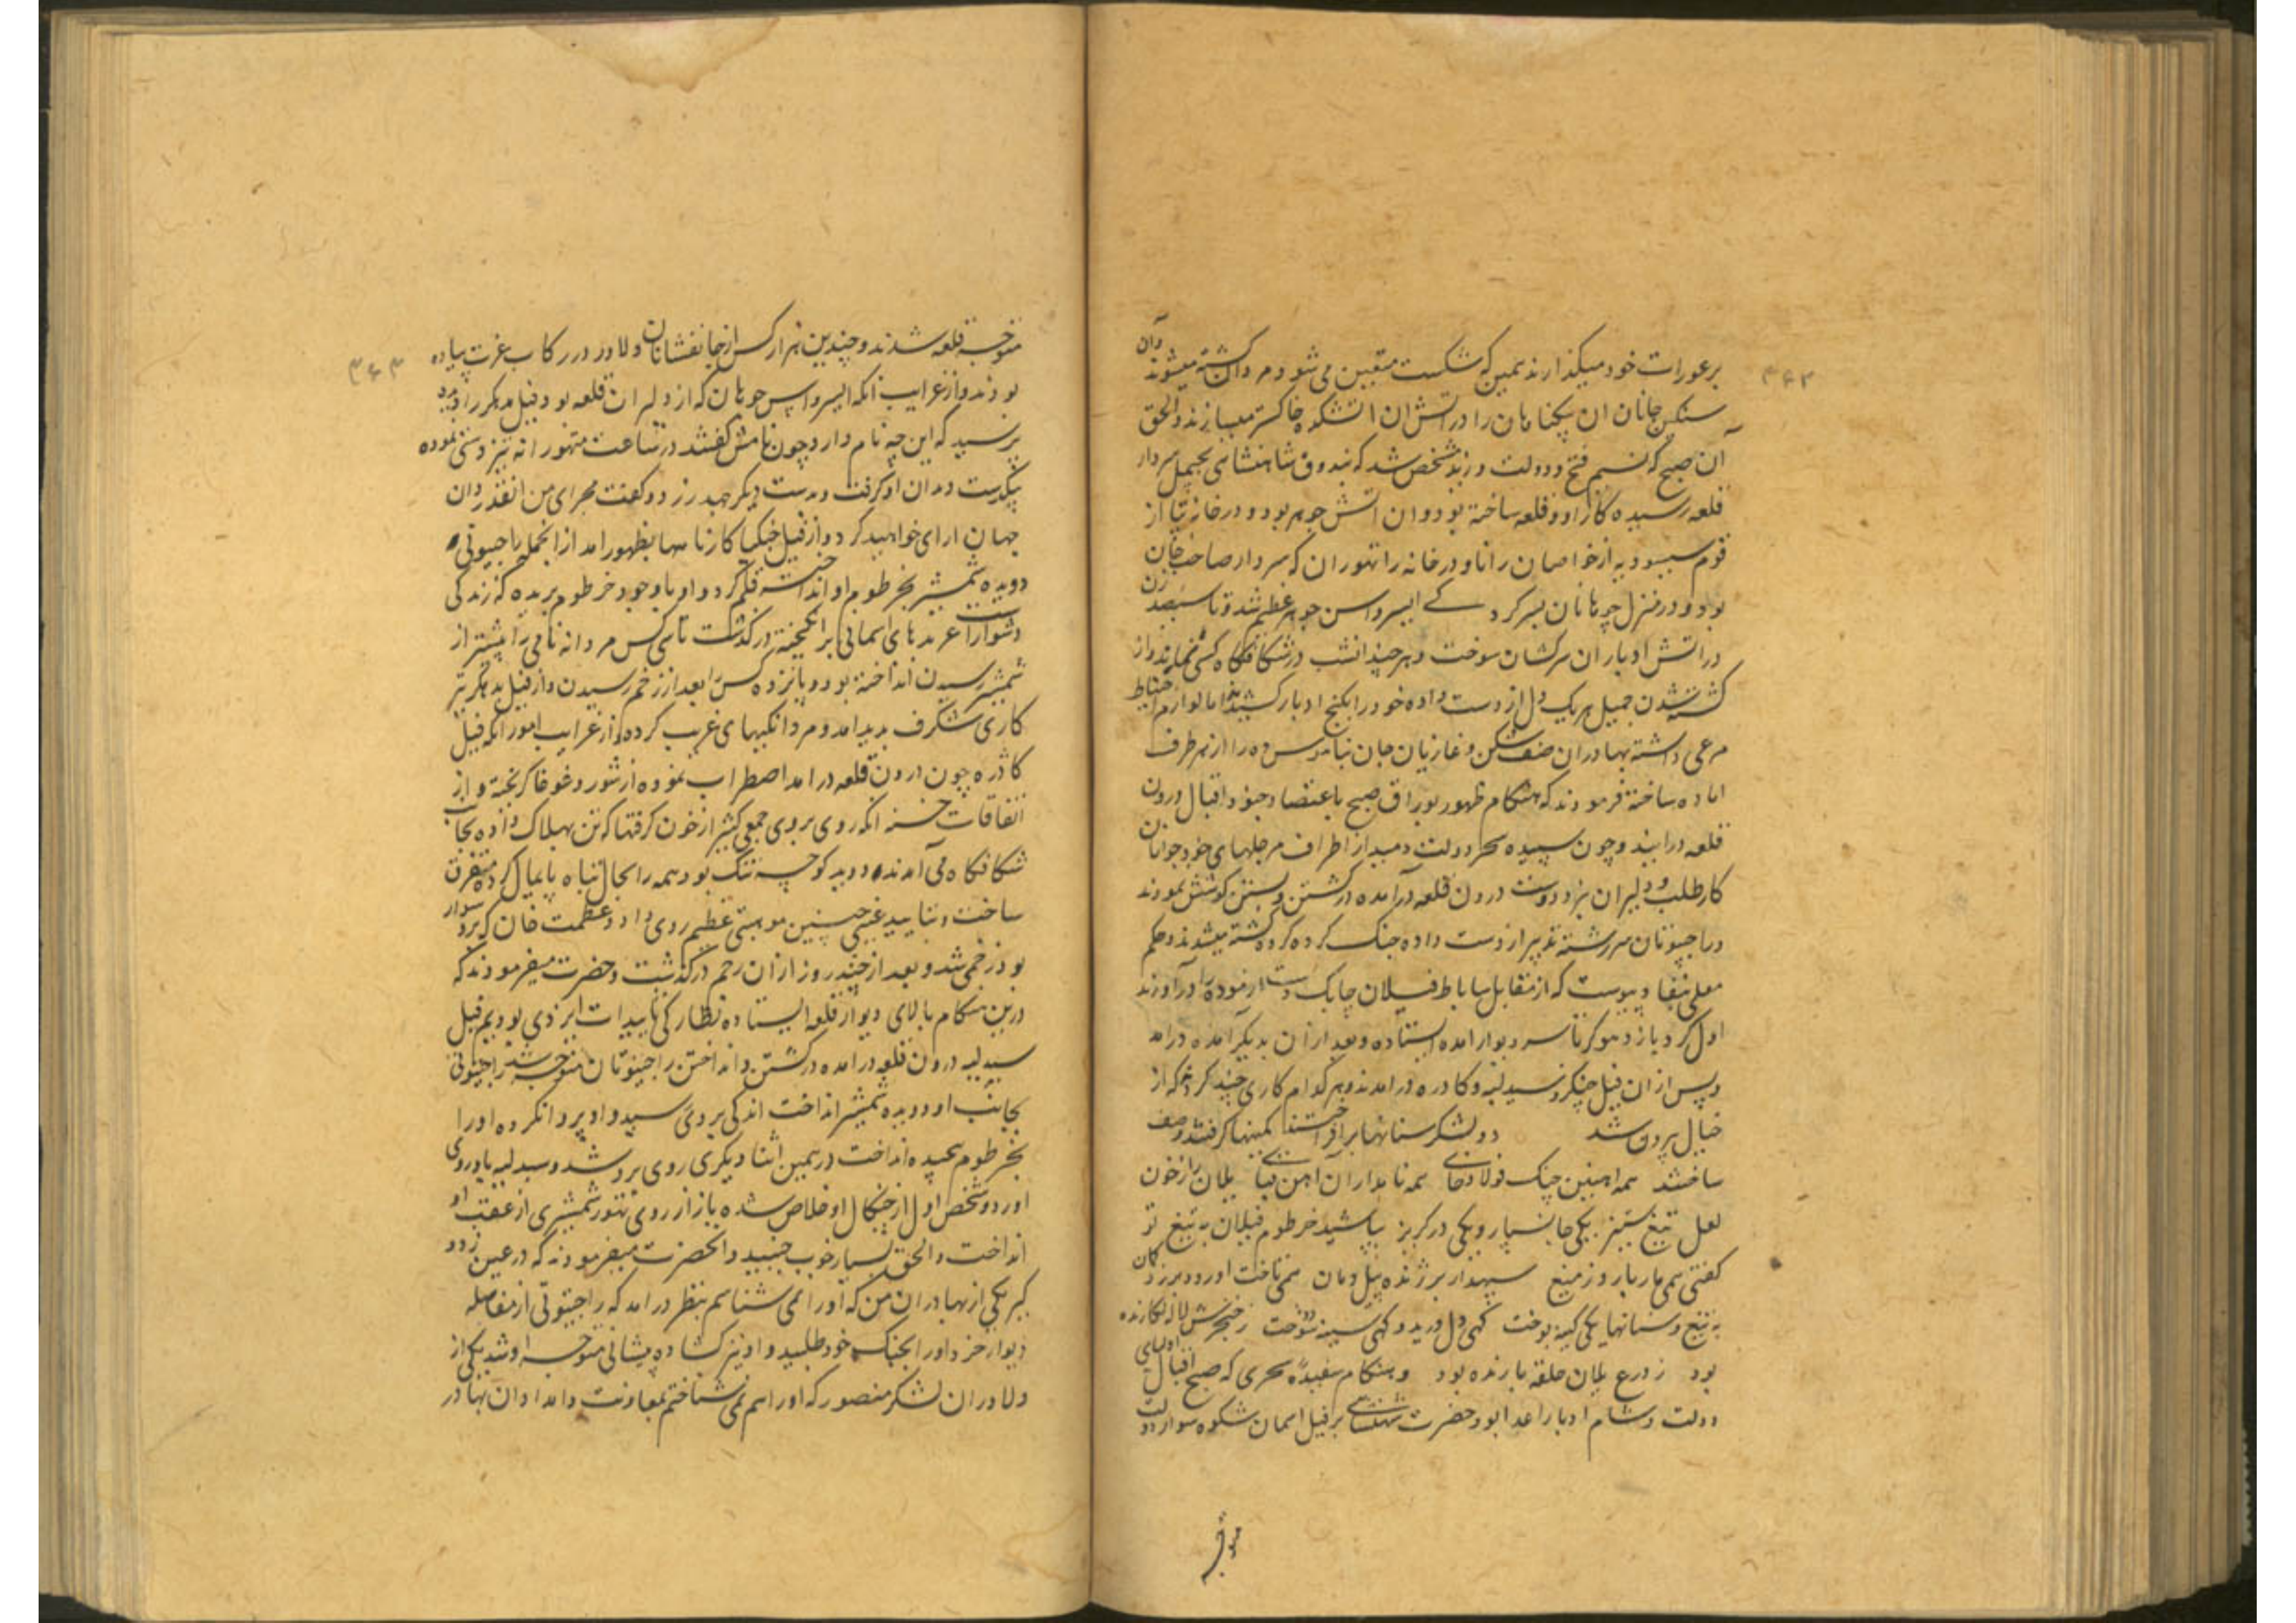 ۳۶۲
بر عورات خود میگذارند همین که شکست متعین می شود و مردان کشته میشوند وآن
سنگین جانان ان بیگناهان را در آتش ان آتشکده خاکستر میسازند والحق
آن صبح که نسیم فتح و دولت وزید مشخص شد که بندوق شاهنشاهی بجیمل سردار
قلعه رسیده کار او و قلعه ساخته بود وان آتش جوهر بود و در خانه پتا از
قوم سیسودیه از خواصان رانا و در خانه راتهوران که سردار صاحب خان
بود و در منزل چوهانان بسر کردے ایسرداس جوهر عظیم شد و تا سیصد زن
در آتش ادبار ان سرکشان سوخت و هر چند انشب در شکافگاه کسی نماند و از
کشته شدن جیمل هر یک دل از دست داده خود را بکنج ادبار کشیدند اما لوازم احتیاط
مرعی داشته بهادران صف شکن و غازیان جان نثار را از هر طرف
اماده ساخته فرمودند که هنگام ظهور بوراق صبح باعتضاد جنود اقبال درون
قلعه درایند و چون سپیده سحر دولت دمید از اطراف مرجلهای خود جوانان
کارطلب و دلیران نبرد دوست درون قلعه درآمده در کشتن و بستن کوشش نمودند
و راجپوتان سررشته تدبیر از دست داده جنگ کرده کرده کشته میشدند و حکم
معلی بنفاذ پیوست که از مقابل ساباط فیلان چابک دست ازموده را درآوردند
اول گردباز و مدهوکر تا سر دیوار امده ایستاده و بعد ازان بدیگر امده درامد
و پس از ان فیل جنگیه و سبدلیه و کادره درامدند و هر کدام کاری چند کردند که از
خیال بیرون شد دو لشکر سنانها برافراختند کمینها گرفتند و صف
ساختند همه اهنین چنگ فولادخای همه نامداران اهن قبای یلان را ز خون
لعل تیغ ستیز یکی جانسپار و یکی در گریز بپاشید خرطوم فیلان به تیغ تو
گفتی همی مار بارد ز میغ سپهدار بر ژنده پیل دمان همی تاخت اورد و میزد کمان
به تیغ و سنانها یکی کینه توخت گهی دل درید و گهی سینه دوخت ز خنجرش لاله کارنده
بود ز درع یلان حلقه بارنده بود و هنگام سفیده سحری که صبح اقبال اولیای
دولت و شام ادبار اعدا بود حضرت شهنشاهی بر فیل اسمان شکوه سوار دولت
متوجه
۳۶۳
متوجه قلعه شدند و چندین هزار کس از جانفشانان دلاور در رکاب عزت پیاده
بودند و از غرایب انکه ایسرداس چوهان که از دلیران قلعه بود فیل مدهکر را دید
پرسید که این چه نام دارد چون نامش گفتند در ساعت متهورانه تیزدستی نموده
بیکدست دندان او گرفت و بدست دیگر جمدر زد و گفت مجرای من انقدردان
جهان ارای خواهید کرد و از فیل جنگیا کارنامها بظهور امد از انجمله راجپوتی
دویده شمشیر بخرطوم او انداخت قلم کرد و او باوجود خرطوم بریده که زندگی
دشوارست عربدهای اسمانی برانگیخته درگذشت تا سی کس مردانه نامی را پیشتر از
شمشیر رسیدن انداخته بود و پانزده کس را بعد از زخم رسیدن و از فیل مدهکر نیز
کاری شگرف پدید امد و مردانگیهای غریب کرده و از غرایب امور انکه فیل
کادره چون درون قلعه درامد اضطراب نموده از شور و غوغا گریخته و از
اتفاقات حسنه انکه روی بروی جمعی کثیر از خون گرفتها که تن بهلاک داده بجانب
شکافگاه می آمدند دوید کوچه تنگ بود همه را بحال تباه پایمال کرده متفرق
ساخت و بتایید غیبی چنین موهبتی عظیم روی داد و عظمت خان که برو سوار
بود زخمی شد و بعد از چند روز ازان زخم درگذشت و حضرت میفرمودند که
درین هنگام بالای دیوار قلعه ایستاده نظارگی تاییدات ایزدی بودیم فیل
سبدلیه درون قلعه درامده در کشتن و انداختن راجپوتان متوجه شد راجپوتی
بجانب او دویده شمشیر انداخت اندکی بروی رسید و او پروا نکرده او را
بخرطوم پیچیده انداخت درهمین اثنا دیگری روی برو شد و سبدلیه باو روی
اورد و شخص اول از چنگال او خلاص شده باز از روی تهور شمشیری از عقب او
انداخت والحق بسیار خوب جنبید و انحضرت میفرمودند که در عین زد و
گیر یکی از بهادران من که او را نمی شناسم بنظر درامد که راجپوتی از مفاصله
دیوار خرد او را بجنگ خود طلبید و او نیز کشاده پیشانی متوجه او شد یکی از
دلاوران لشکر منصور که او را هم نمی شناختم بمعاونت و امداد ان بهادر